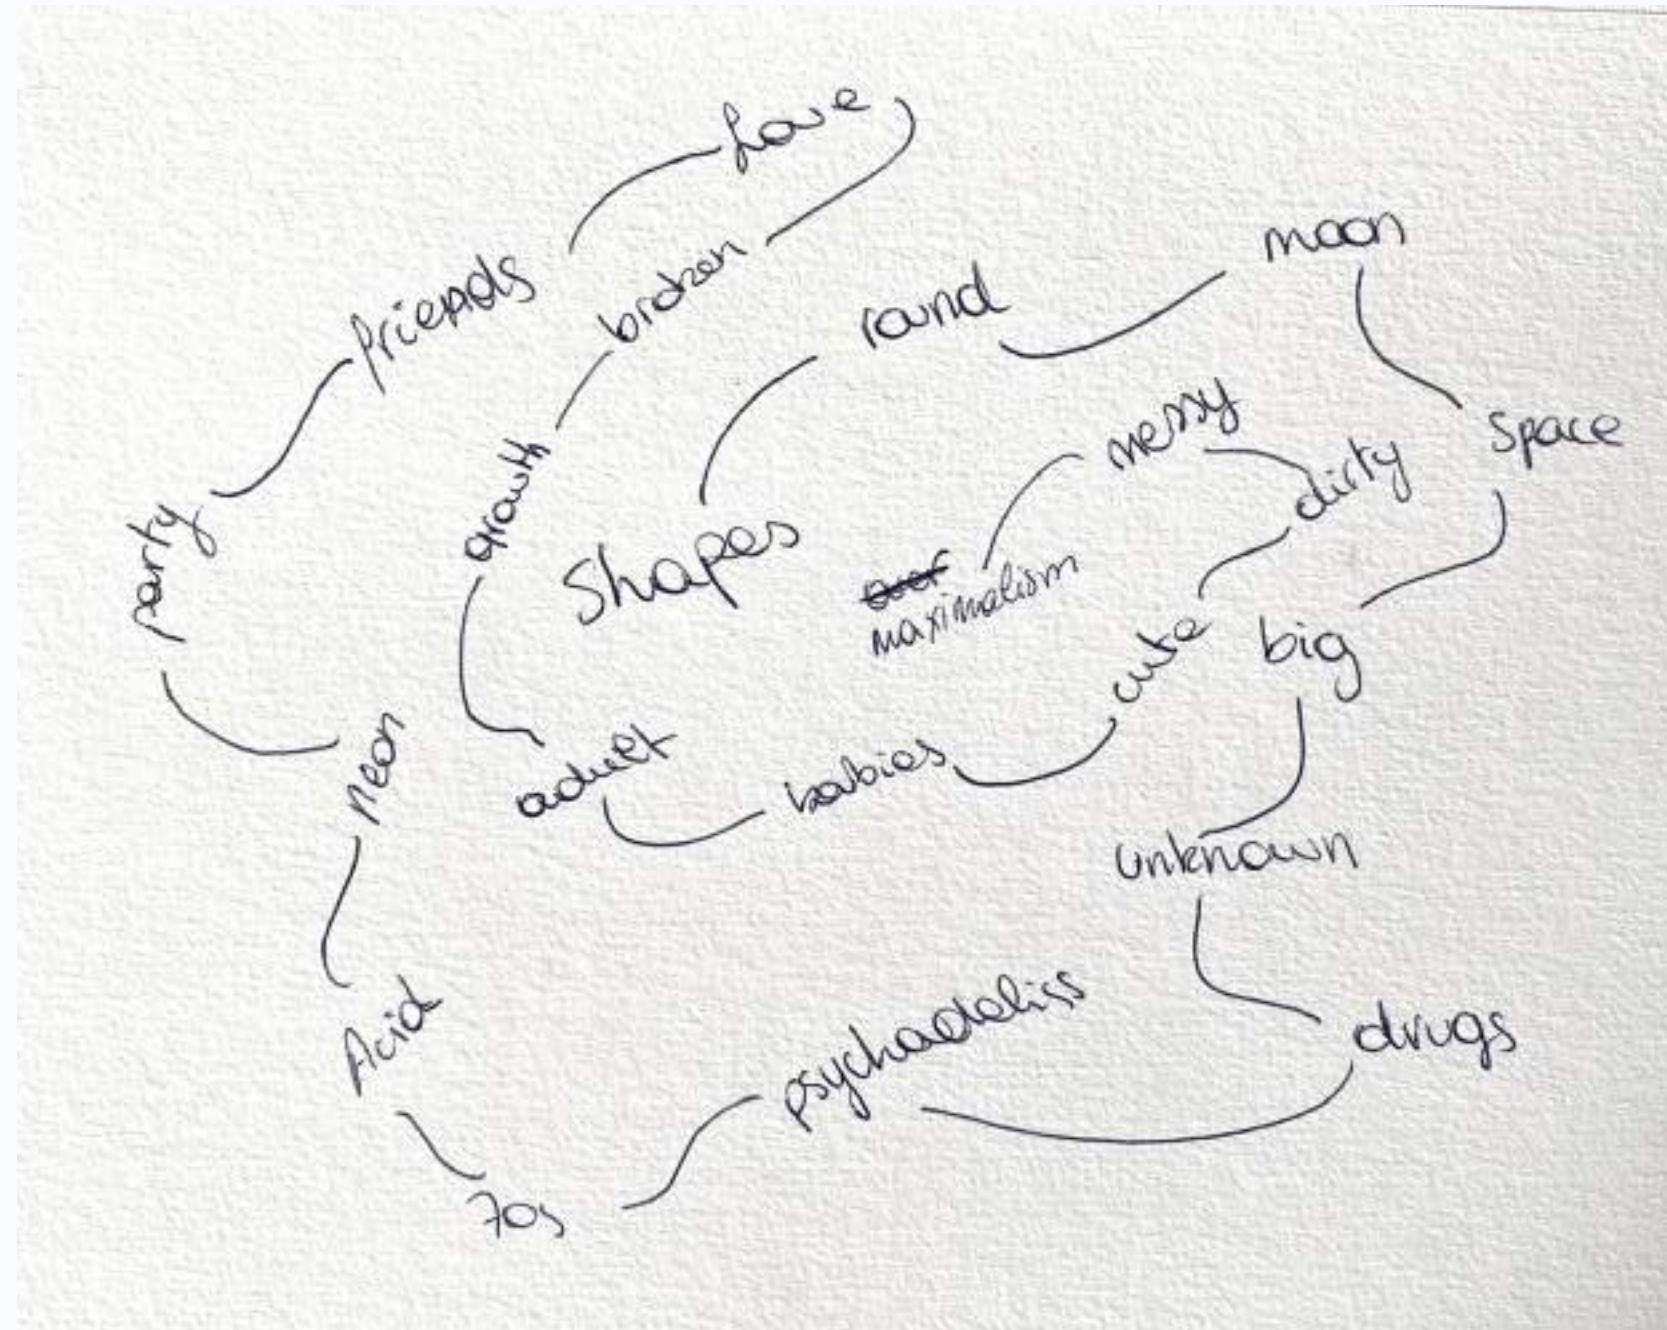 Shapes
round
moon
Space
big
unknown
drugs
psychadeliss
70s
Acid
neon
party
friends
Love
broken
growth
adult
babies
cute
dirty
messy
maximalism